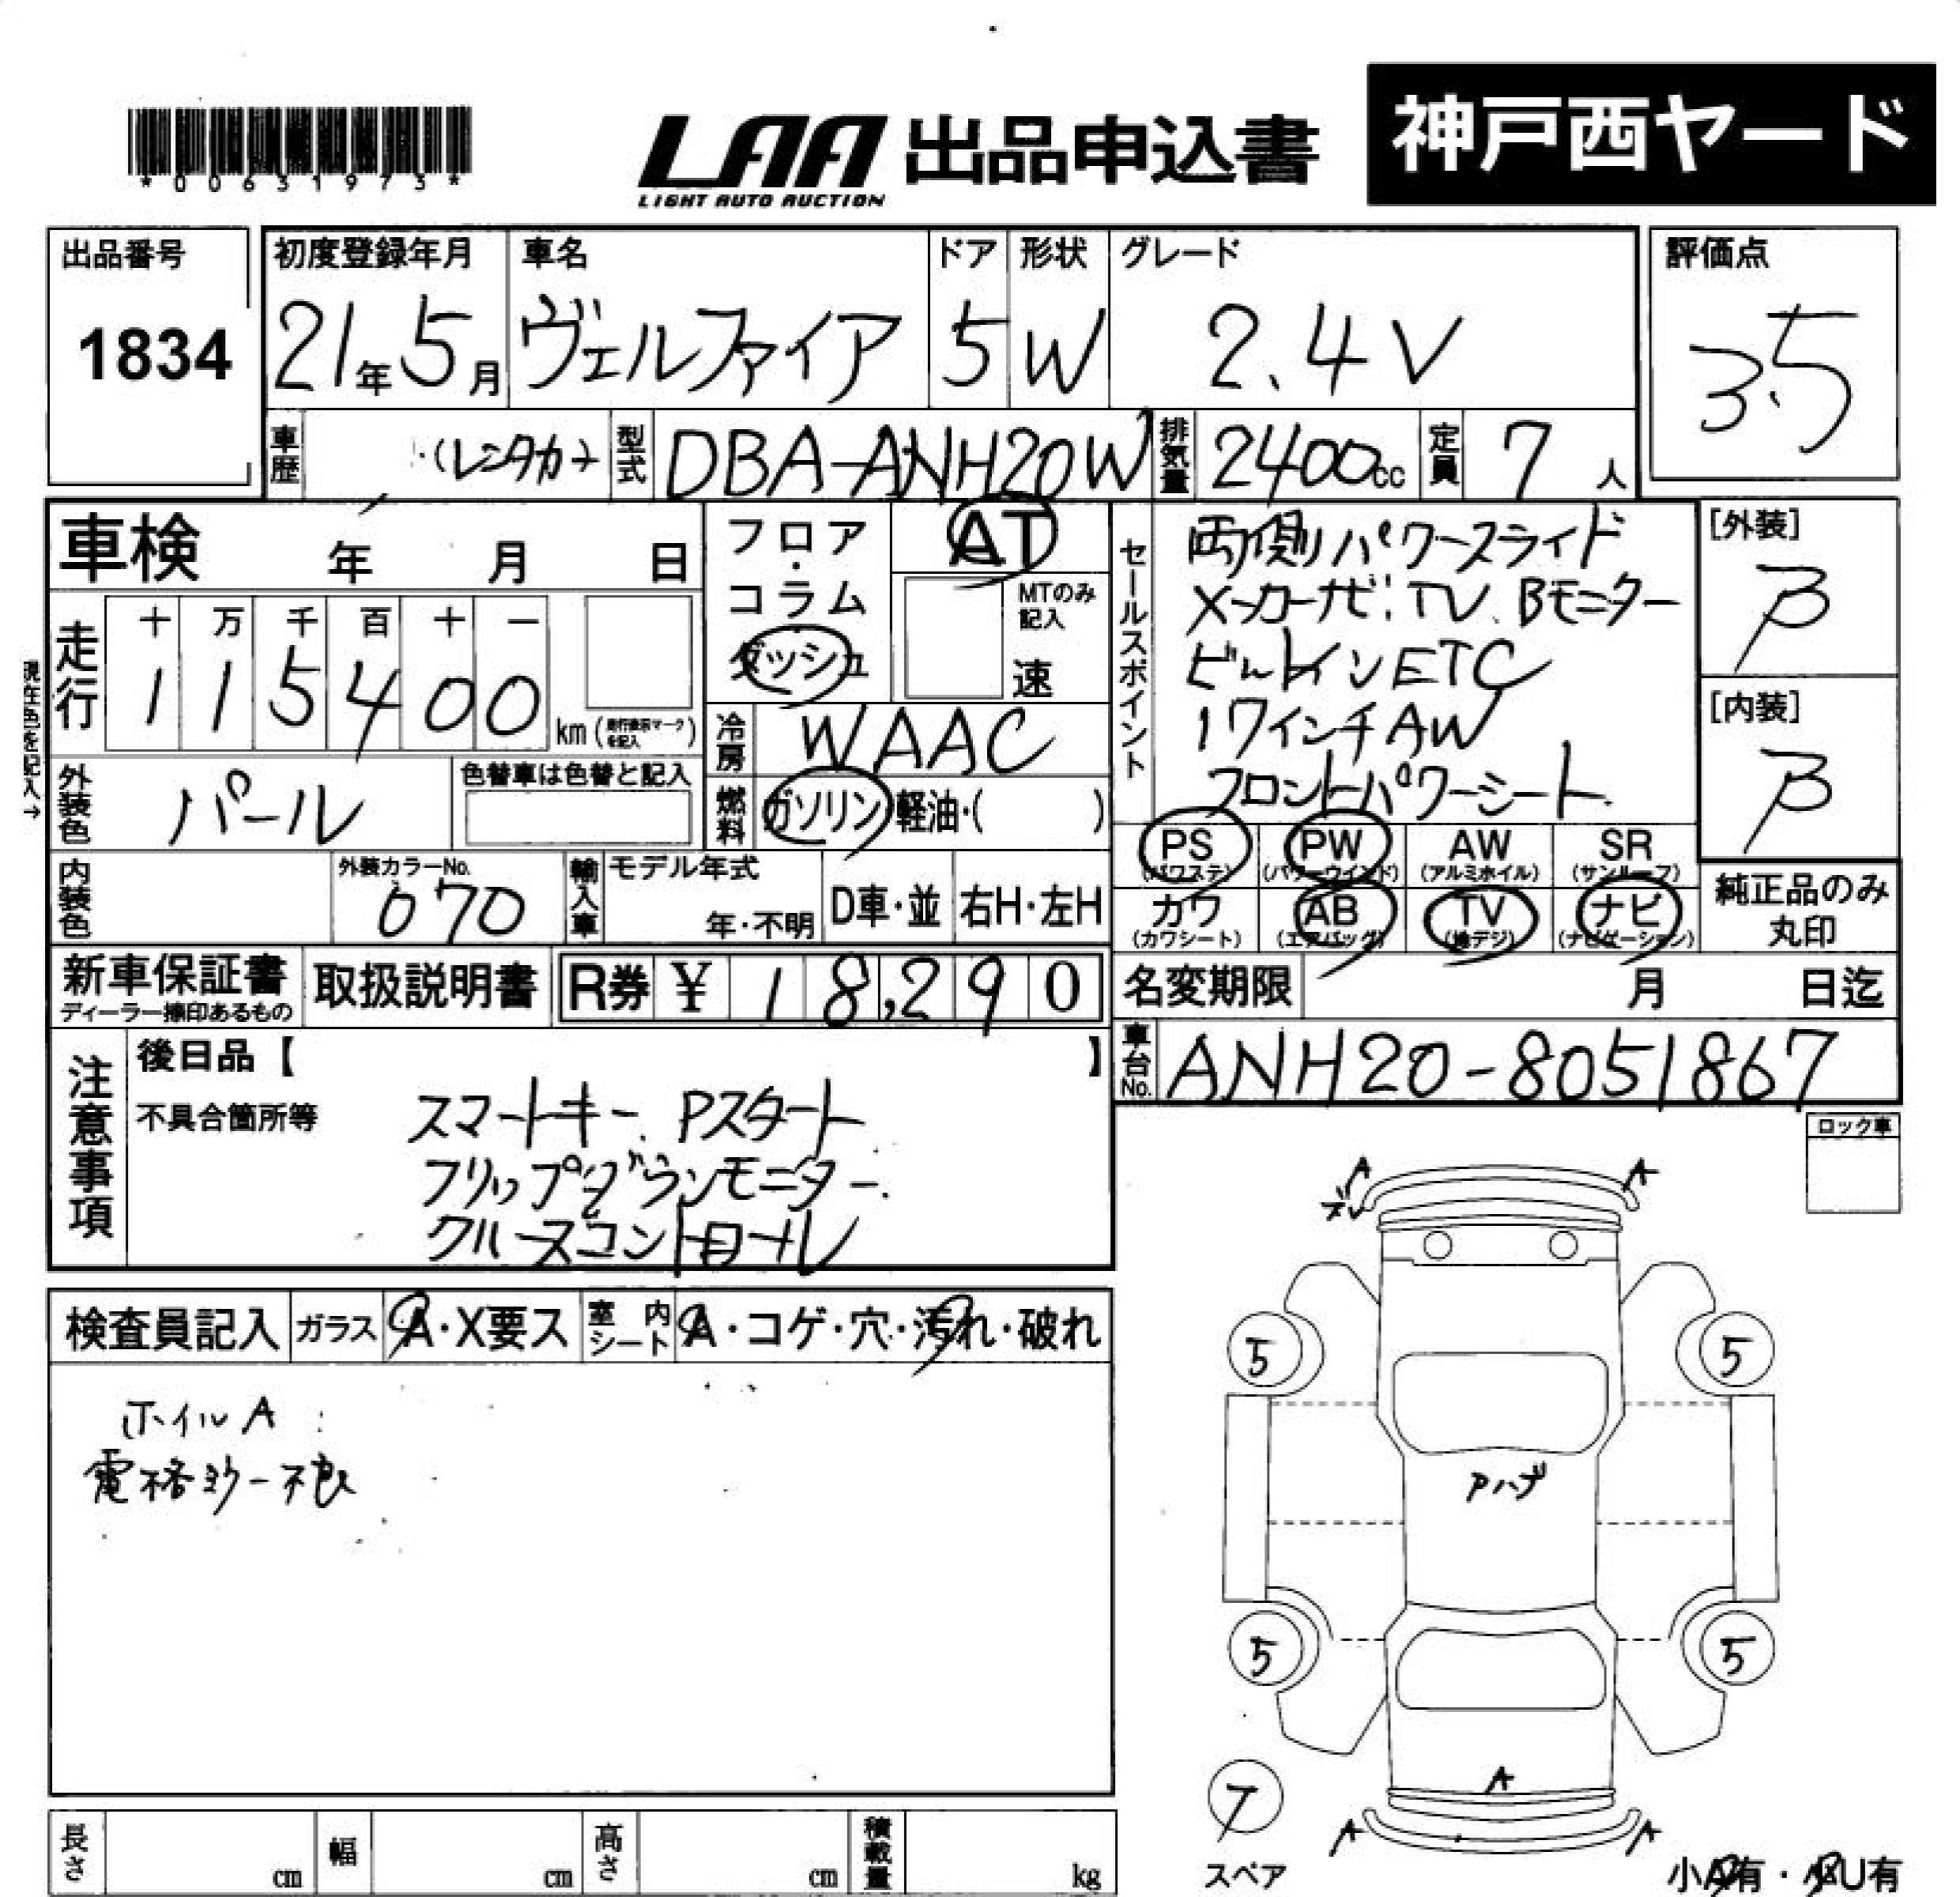 *00631973*
LAA 出品申込書 神戸西ヤード
LIGHT AUTO AUCTION
出品番号 初度登録年月 車名 ドア 形状 グレード 評価点
1834 21年5月 ヴェルファイア 5 W 2.4V 3.5
車歴 (レンタカー) 型式 DBA-ANH20W 排気量 2400cc 定員 7人
車検 年 月 日
フロア・コラム ダッシュ
AT
MTのみ記入
速
走行 十 万 千 百 十 一
115400 km (走行換算マークを記入)
現在色を記入→
冷房 WAAC
外装色 パール 色替車は色替と記入
燃料 ガソリン 軽油・( )
セールスポイント
両側パワースライド
メーカーナビ.TV.Bモニター
ビルトインETC
17インチAW
フロントパワーシート
[外装]
B
[内装]
B
PS PW AW SR
(パワステ) (パワーウインド) (アルミホイル) (サンルーフ)
カワ AB TV ナビ
(カワシート) (エアバッグ) (地デジ) (ナビゲーション)
純正品のみ
丸印
内装色 外装カラーNo. 070 輸入車 モデル年式 年・不明 D車・並 右H・左H
新車保証書 取扱説明書 R券 ¥ 18,290
ディーラー捺印あるもの
名変期限 月 日迄
車台No. ANH20-8051867
注意事項
後日品【 】
不具合箇所等
スマートキー.Pスタート
フリップダウンモニター.
クルーズコントロール
ロック車
検査員記入 ガラス A・X要ス 室内シート A・コゲ・穴・汚れ・破れ
ホイルA
電格ミラー不良
A A
ズレ
5 5
Pハゲ
5 5
A
7
A A
スペア
小A有・小U有
長さ cm 幅 cm 高さ cm 積載量 kg